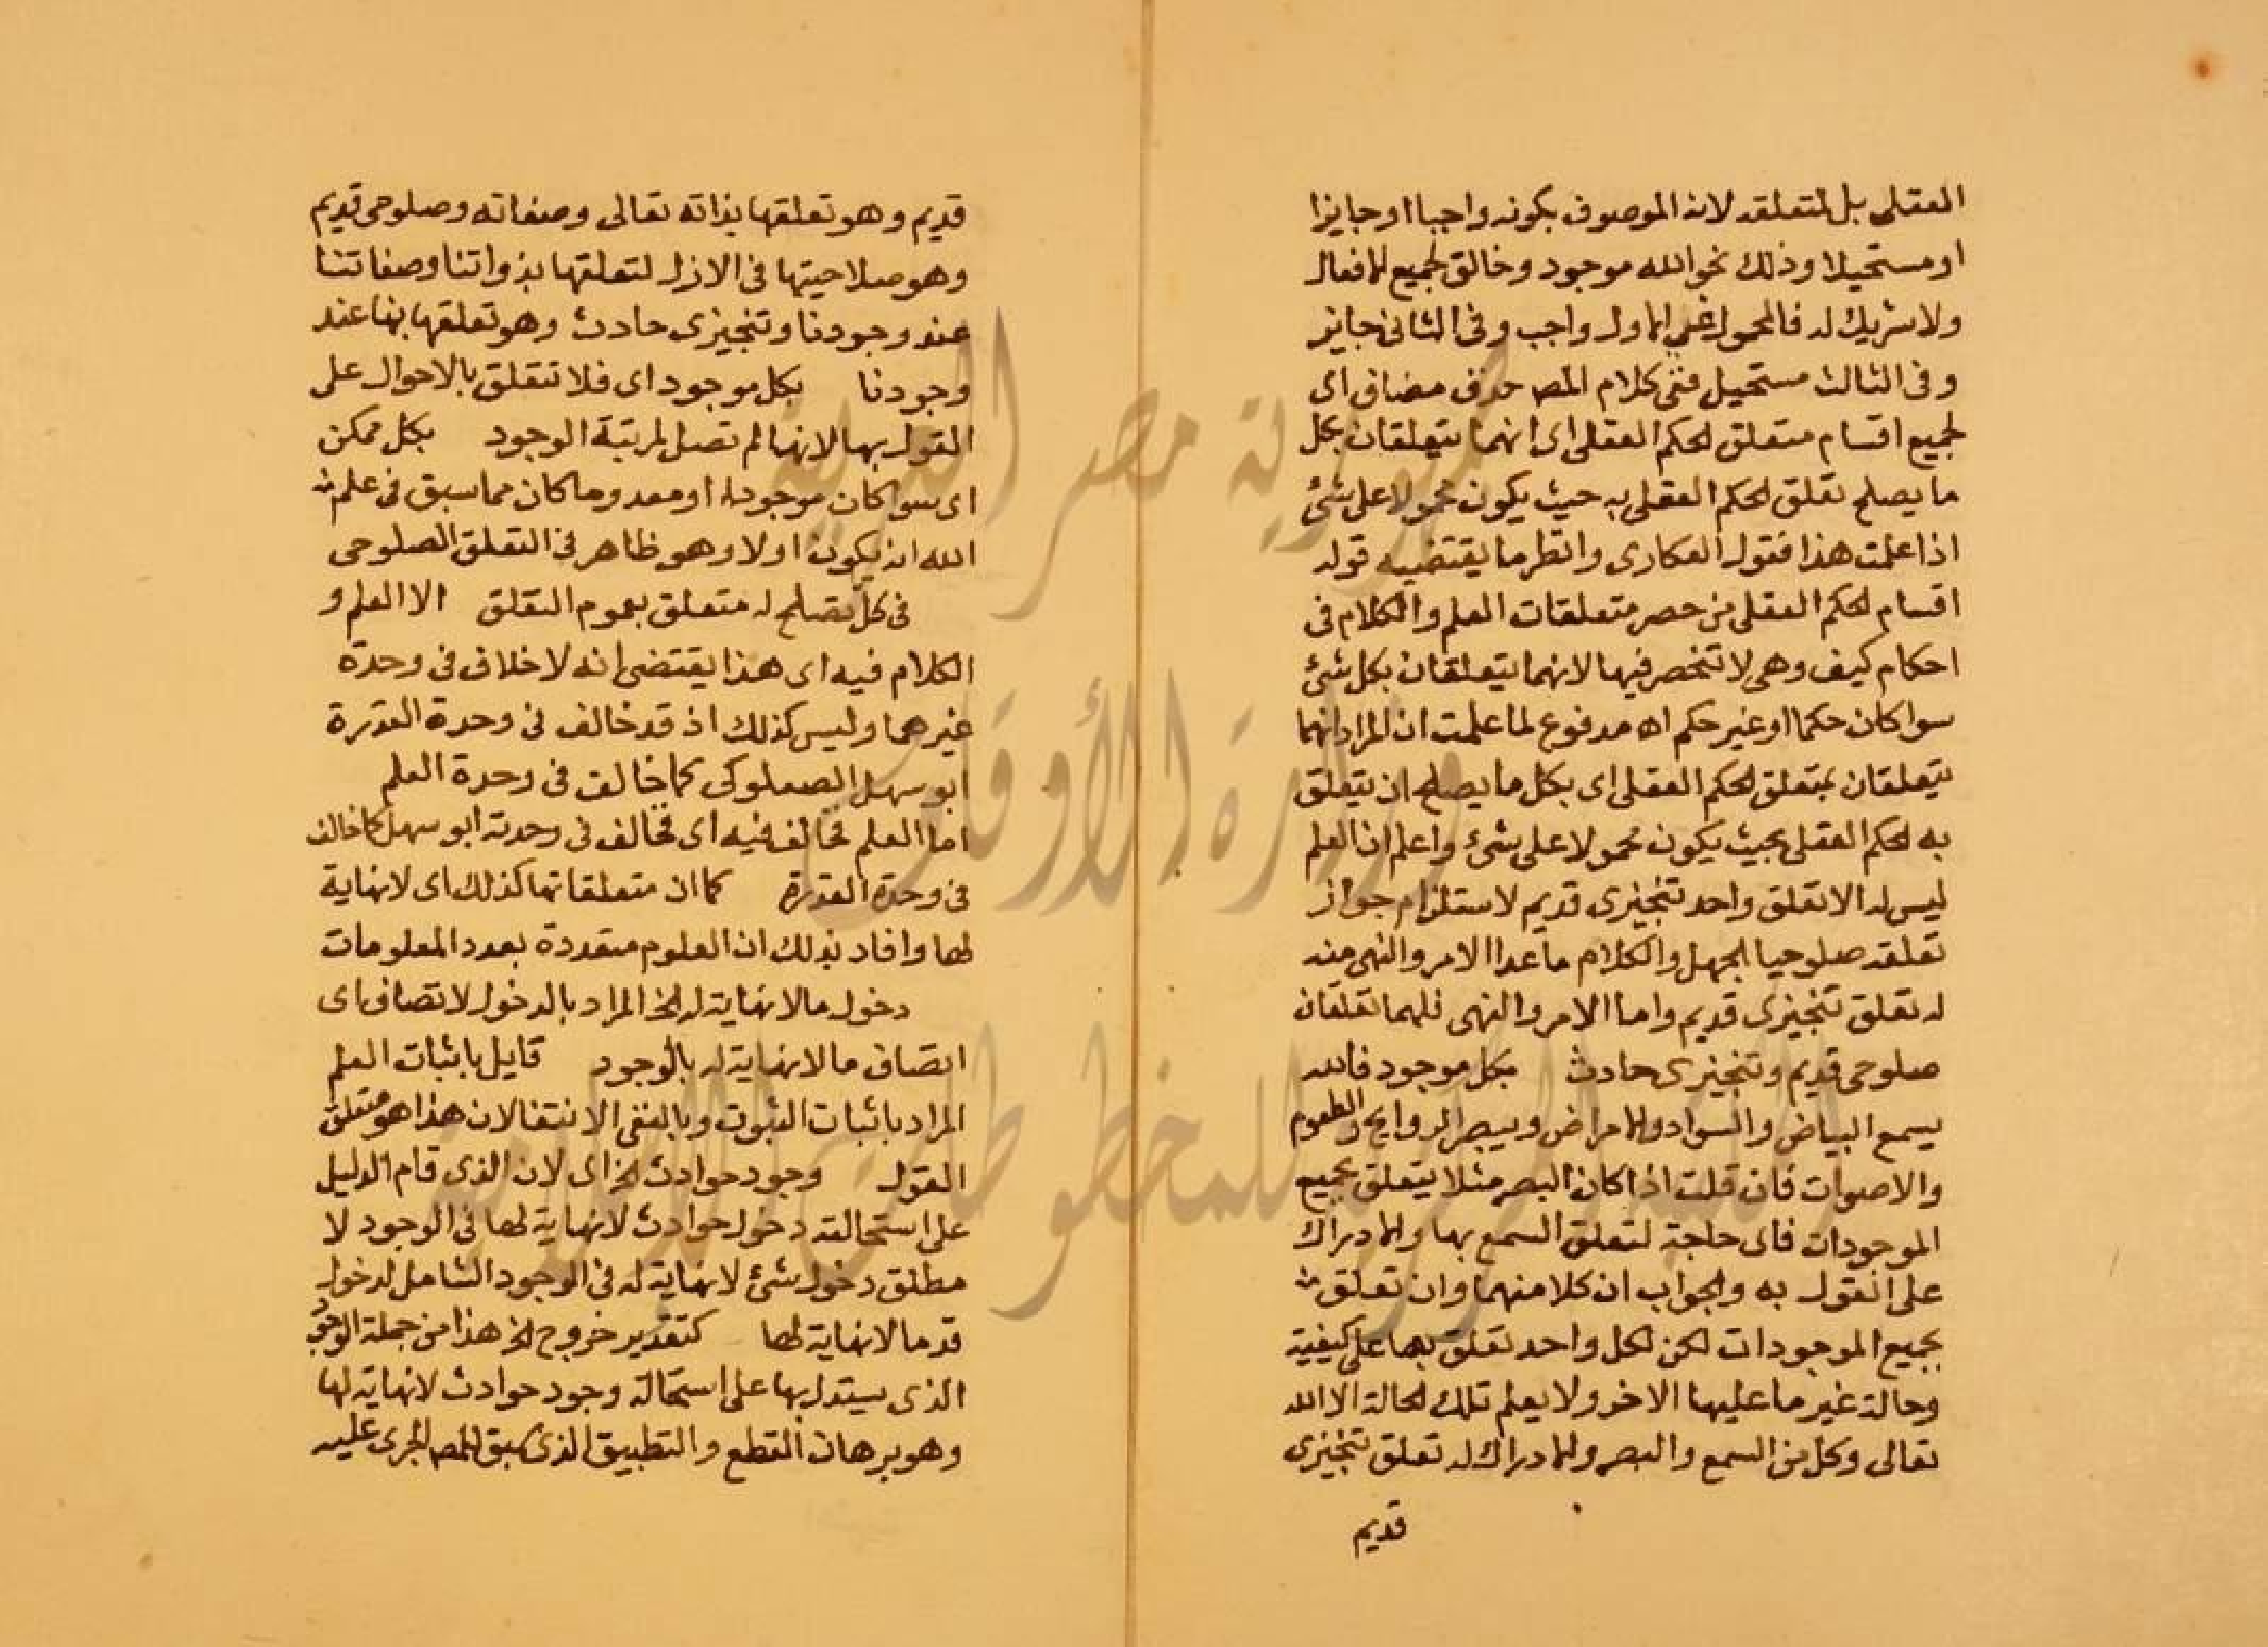 العقلى بل لمتعلقه لانه الموصوف بكونه واجبا او جايزا
او مستحيلا وذلك نحو الله موجود وخالق لجميع الافعال
ولا شريك له فالمحمول في الاول واجب وفى الثانى جايز
وفى الثالث مستحيل ففى كلام المص حذف مضاف اى
لجميع اقسام متعلق الحكم العقلى اى انهما يتعلقان بكل
ما يصلح تعلق الحكم العقلى به حيث يكون محمولا على شئ
اذا علمت هذا فقول العكارى وانظر ما يقتضيه قوله
اقسام الحكم العقلى من حصر متعلقات العلم والكلام فى
احكام كيف وهى لا تنحصر فيها لانهما يتعلقان بكل شئ
سوا كان حكما او غير حكم اه مدفوع لما علمت ان المراد انهما
يتعلقان بمتعلق الحكم العقلى اى بكل ما يصلح ان يتعلق
به الحكم العقلى بحيث يكون محمولا على شئ واعلم ان العلم
ليس له الا تعلق واحد تنجيزى قديم لاستلزام جواز
تعلقه صلوحيا الجهل والكلام ما عدا الامر والنهى منه
له تعلق تنجيزى قديم واما الامر والنهى فلهما تعلقان
صلوحى قديم وتنجيزى حادث بكل موجود فالله
يسمع البياض والسواد والامراض ويبصر الروايح والطعوم
والاصوات فان قلت اذا كان البصر مثلا يتعلق بجميع
الموجودات فاى حاجة لتعلق السمع بها والادراك
على القول به والجواب ان كلا منهما وان تعلق
بجميع الموجودات لكن لكل واحد تعلق بها على كيفية
وحالة غير ما عليها الاخر ولا يعلم تلك الحالة الا الله
تعالى وكل من السمع والبصر والادراك له تعلق تنجيزى
قديم
قديم وهو تعلقها بذاته تعالى وصفاته وصلوحى قديم
وهو صلاحيتها فى الازل لتعلقها بذواتنا وصفاتنا
عند وجودنا وتنجيزى حادث وهو تعلقها بها عند
وجودنا بكل موجود اى فلا تتعلق بالاحوال على
القول بها لانها لم تصل لمرتبة الوجود بكل ممكن
اى سوا كان موجودا او معدوما كان مما سبق فى علم
الله ان يكون اولا وهو ظاهر فى التعلق الصلوحى
فى كل تصلح له متعلق بعموم التعلق الا العلم و
الكلام فيه اى هذا يقتضى انه لا خلاف فى وحدة
غيرهما وليس كذلك اذ قد خالف فى وحدة القدرة
ابو سهل الصعلوكى كما خالف فى وحدة العلم
اما العلم فخالف فيه اى فخالف فى وحدته ابو سهل كما خالف
فى وحدة القدرة كما ان متعلقاتها كذلك اى لا نهاية
لها وافاد بذلك ان العلوم متعددة بعدد المعلومات
دخول ما لا نهاية له الخ المراد بالدخول الاتصاف اى
اتصاف ما لا نهاية له بالوجود قايل باثبات العلم
المراد باثبات الثبوت وبالنفى الانتفا لان هذا هو متعلق
القول وجود حوادث الخ اى لان الذى قام الدليل
على استحالته دخول حوادث لا نهاية لها فى الوجود لا
مطلق دخول شئ لا نهاية له فى الوجود الشامل لدخول
قدما لا نهاية لها كتقدير خروج الخ هذا من جملة الوجوه
الذى يستدل بها على استحالة وجود حوادث لا نهاية لها
وهو برهان القطع والتطبيق الذى سبق للمص الجرى عليه
جمهورية مصر العربية
وزارة الأوقاف
المكتبة المركزية للمخطوطات الإسلامية